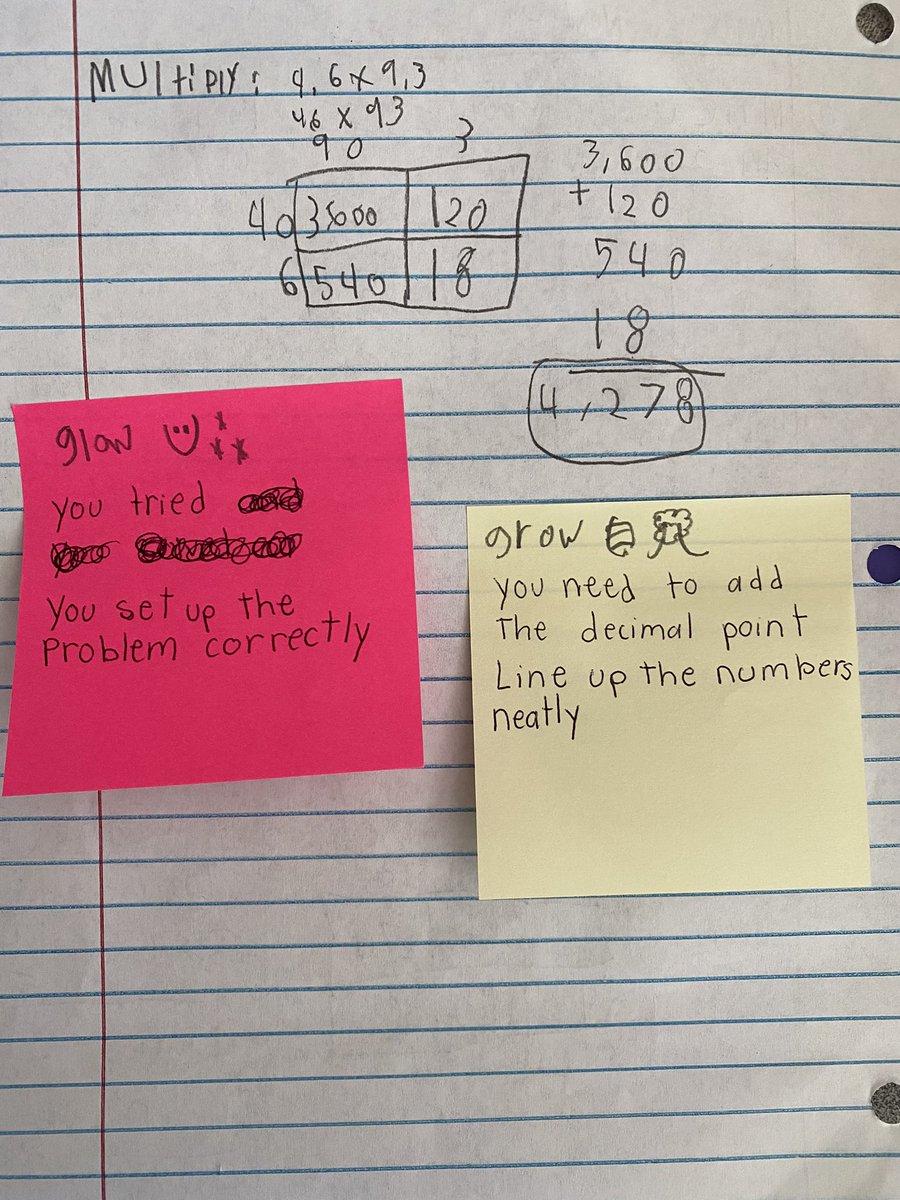 MUltiPlY: 4.6 x 9.3
46 x 93
90 3
40 3600 120
6 540 18
3,600
+ 120
540
18
4,278
glow
you tried
You set up the
Problem correctly
grow
you need to add
The decimal point
Line up the numbers
neatly